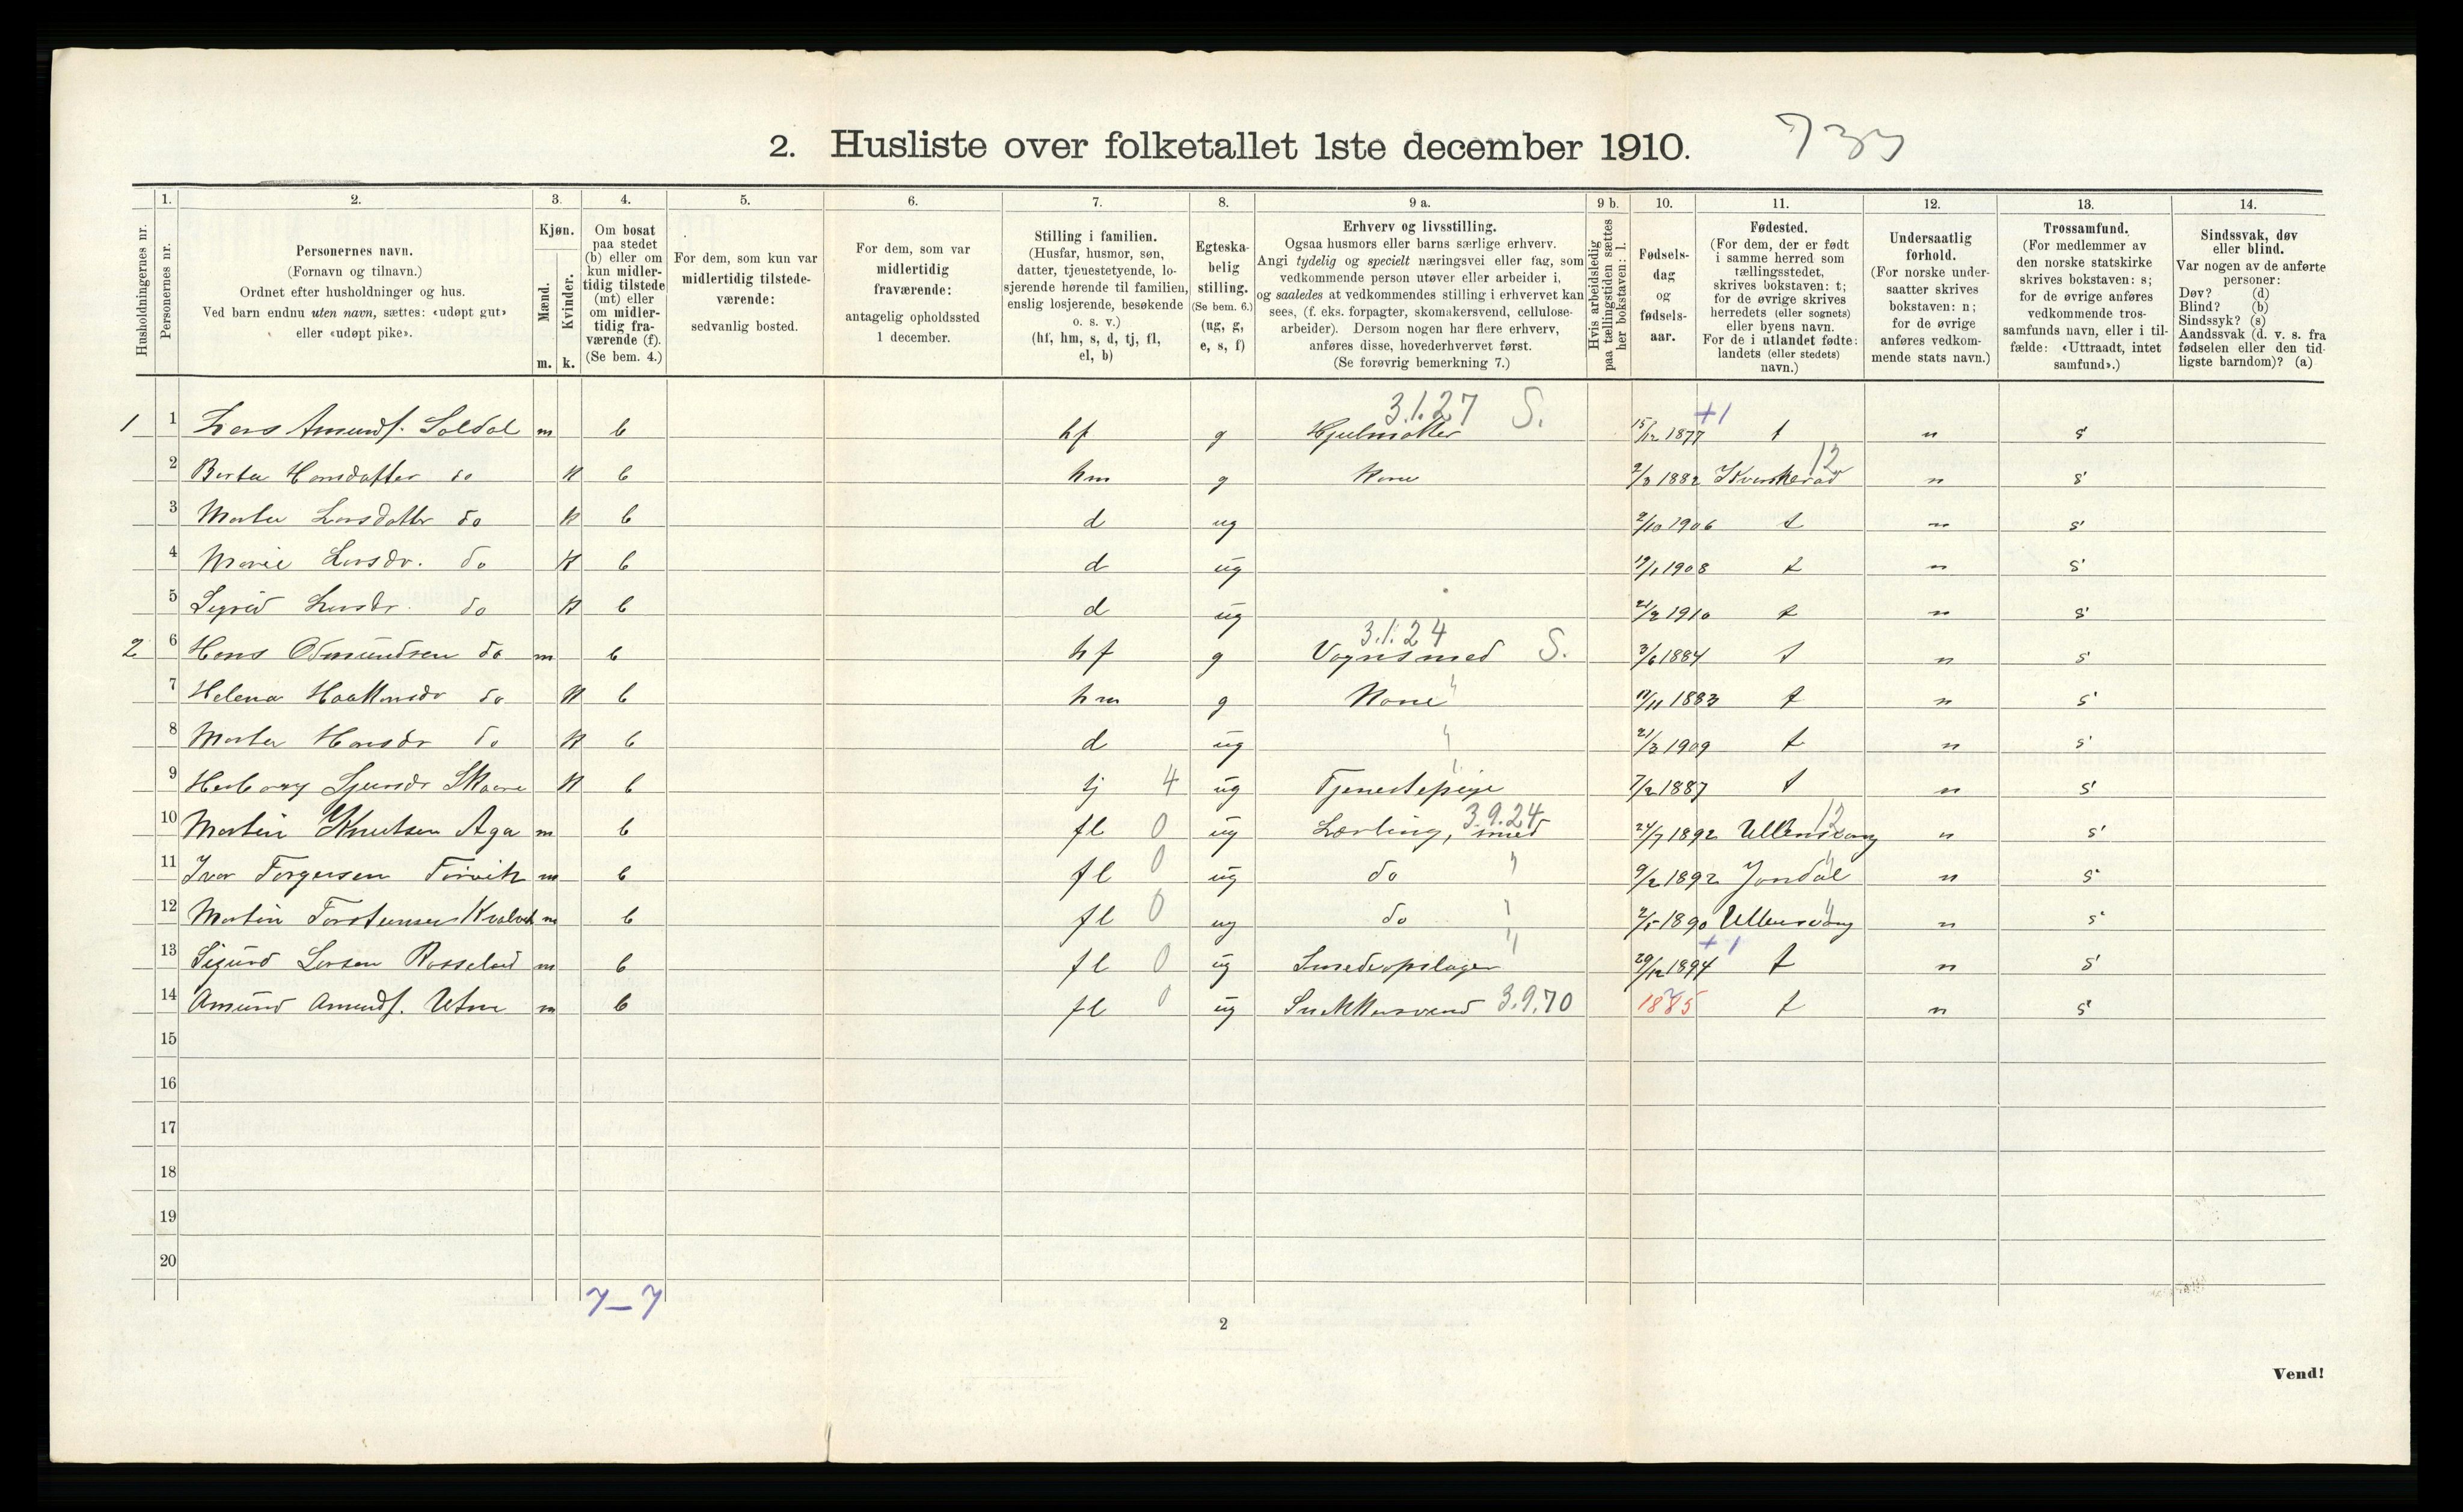 2. Husliste over folketallet 1ste december 1910.
1. 2. 3. 4. 5. 6. 7. 8. 9 a. 9 b. 10. 11. 12. 13. 14.
Husholdningernes nr.
Personernes nr.
Personernes navn.
(Fornavn og tilnavn.)
Ordnet efter husholdninger og hus.
Ved barn endnu uten navn, sættes: «udøpt gut»
eller «udøpt pike».
Kjøn.
Mænd.
Kvinder.
m. k.
Om bosat
paa stedet
(b) eller om
kun midler-
tidig tilstede
(mt) eller
om midler-
tidig fra-
værende (f).
(Se bem. 4.)
For dem, som kun var
midlertidig tilstede-
værende:
sedvanlig bosted.
For dem, som var
midlertidig
fraværende:
antagelig opholdssted
1 december.
Stilling i familien.
(Husfar, husmor, søn,
datter, tjenestetyende, lo-
sjerende hørende til familien,
enslig losjerende, besøkende
o. s. v.)
(hf, hm, s, d, tj, fl,
el, b)
Egteska-
belig
stilling.
(Se bem. 6.)
(ug, g,
e, s, f)
Erhverv og livsstilling.
Ogsaa husmors eller barns særlige erhverv.
Angi tydelig og specielt næringsvei eller fag, som
vedkommende person utøver eller arbeider i,
og saaledes at vedkommendes stilling i erhvervet kan
sees, (f. eks. forpagter, skomakersvend, cellulose-
arbeider). Dersom nogen har flere erhverv,
anføres disse, hovederhvervet først.
(Se forøvrig bemerkning 7.)
Hvis arbeidsledig
paa tællingstiden sættes
her bokstaven: l.
Fødsels-
dag
og
fødsels-
aar.
Fødested.
(For dem, der er født
i samme herred som
tællingsstedet,
skrives bokstaven: t;
for de øvrige skrives
herredets (eller sognets)
eller byens navn.
For de i utlandet fødte:
landets (eller stedets)
navn.)
Undersaatlig
forhold.
(For norske under-
saatter skrives
bokstaven: n;
for de øvrige
anføres vedkom-
mende stats navn.)
Trossamfund.
(For medlemmer av
den norske statskirke
skrives bokstaven: s;
for de øvrige anføres
vedkommende tros-
samfunds navn, eller i til-
fælde: «Uttraadt, intet
samfund».)
Sindssvak, døv
eller blind.
Var nogen av de anførte
personer:
Døv? (d)
Blind? (b)
Sindssyk? (s)
Aandssvak (d. v. s. fra
fødselen eller den tid-
ligste barndom)? (a)
3.1.27 S. +1
1 1 Lars Amundf. Soldal m b hf g Hjulmaker 15/12 1877 t n s
12
2 Berta Hansdatter do k b hm g Kone 2/3 1882 Kvinherad n s
3 Marta Larsdatter do k b d ug 2/10 1906 t n s
4 Marie Larsdr. do k b d ug 19/1 1908 t n s
5 Sigrid Larsdr. do k b d ug 21/2 1910 t n s
3.1.24 S.
2 6 Hans Odmundsen do m b hf g Vognsmed 3/6 1884 t n s
7 Helena Haakonsdr do k b hm g Kone " /11 1883 t n s
8 Marta Hansdr do k b d ug " 21/3 1909 t n s
9 Herborg Sjursdr Skaare k b tj 4 ug Tjenestepige 7/2 1887 t n s
3.9.24 12
10 Martin Knutsen Aga m b fl 0 ug Lærling, smed 24/7 1892 Ullensvang n s
11 Ivar Torgersen Torvik m b fl 0 ug do " 9/2 1892 Jondal " n s
12 Martin Torstensen m b fl 0 ug do " 2/5 1890 Ullensvang " n s
+1
13 Sigurd Larsen Rosseland m b fl 0 ug Smedoplager " 29/12 1894 t n s
14 Amund Amundf. Utne m b fl 0 ug Snekkersvend 3.9.70 1885 t n s
15
16
17
18
19
20
7–7
2
Vend!